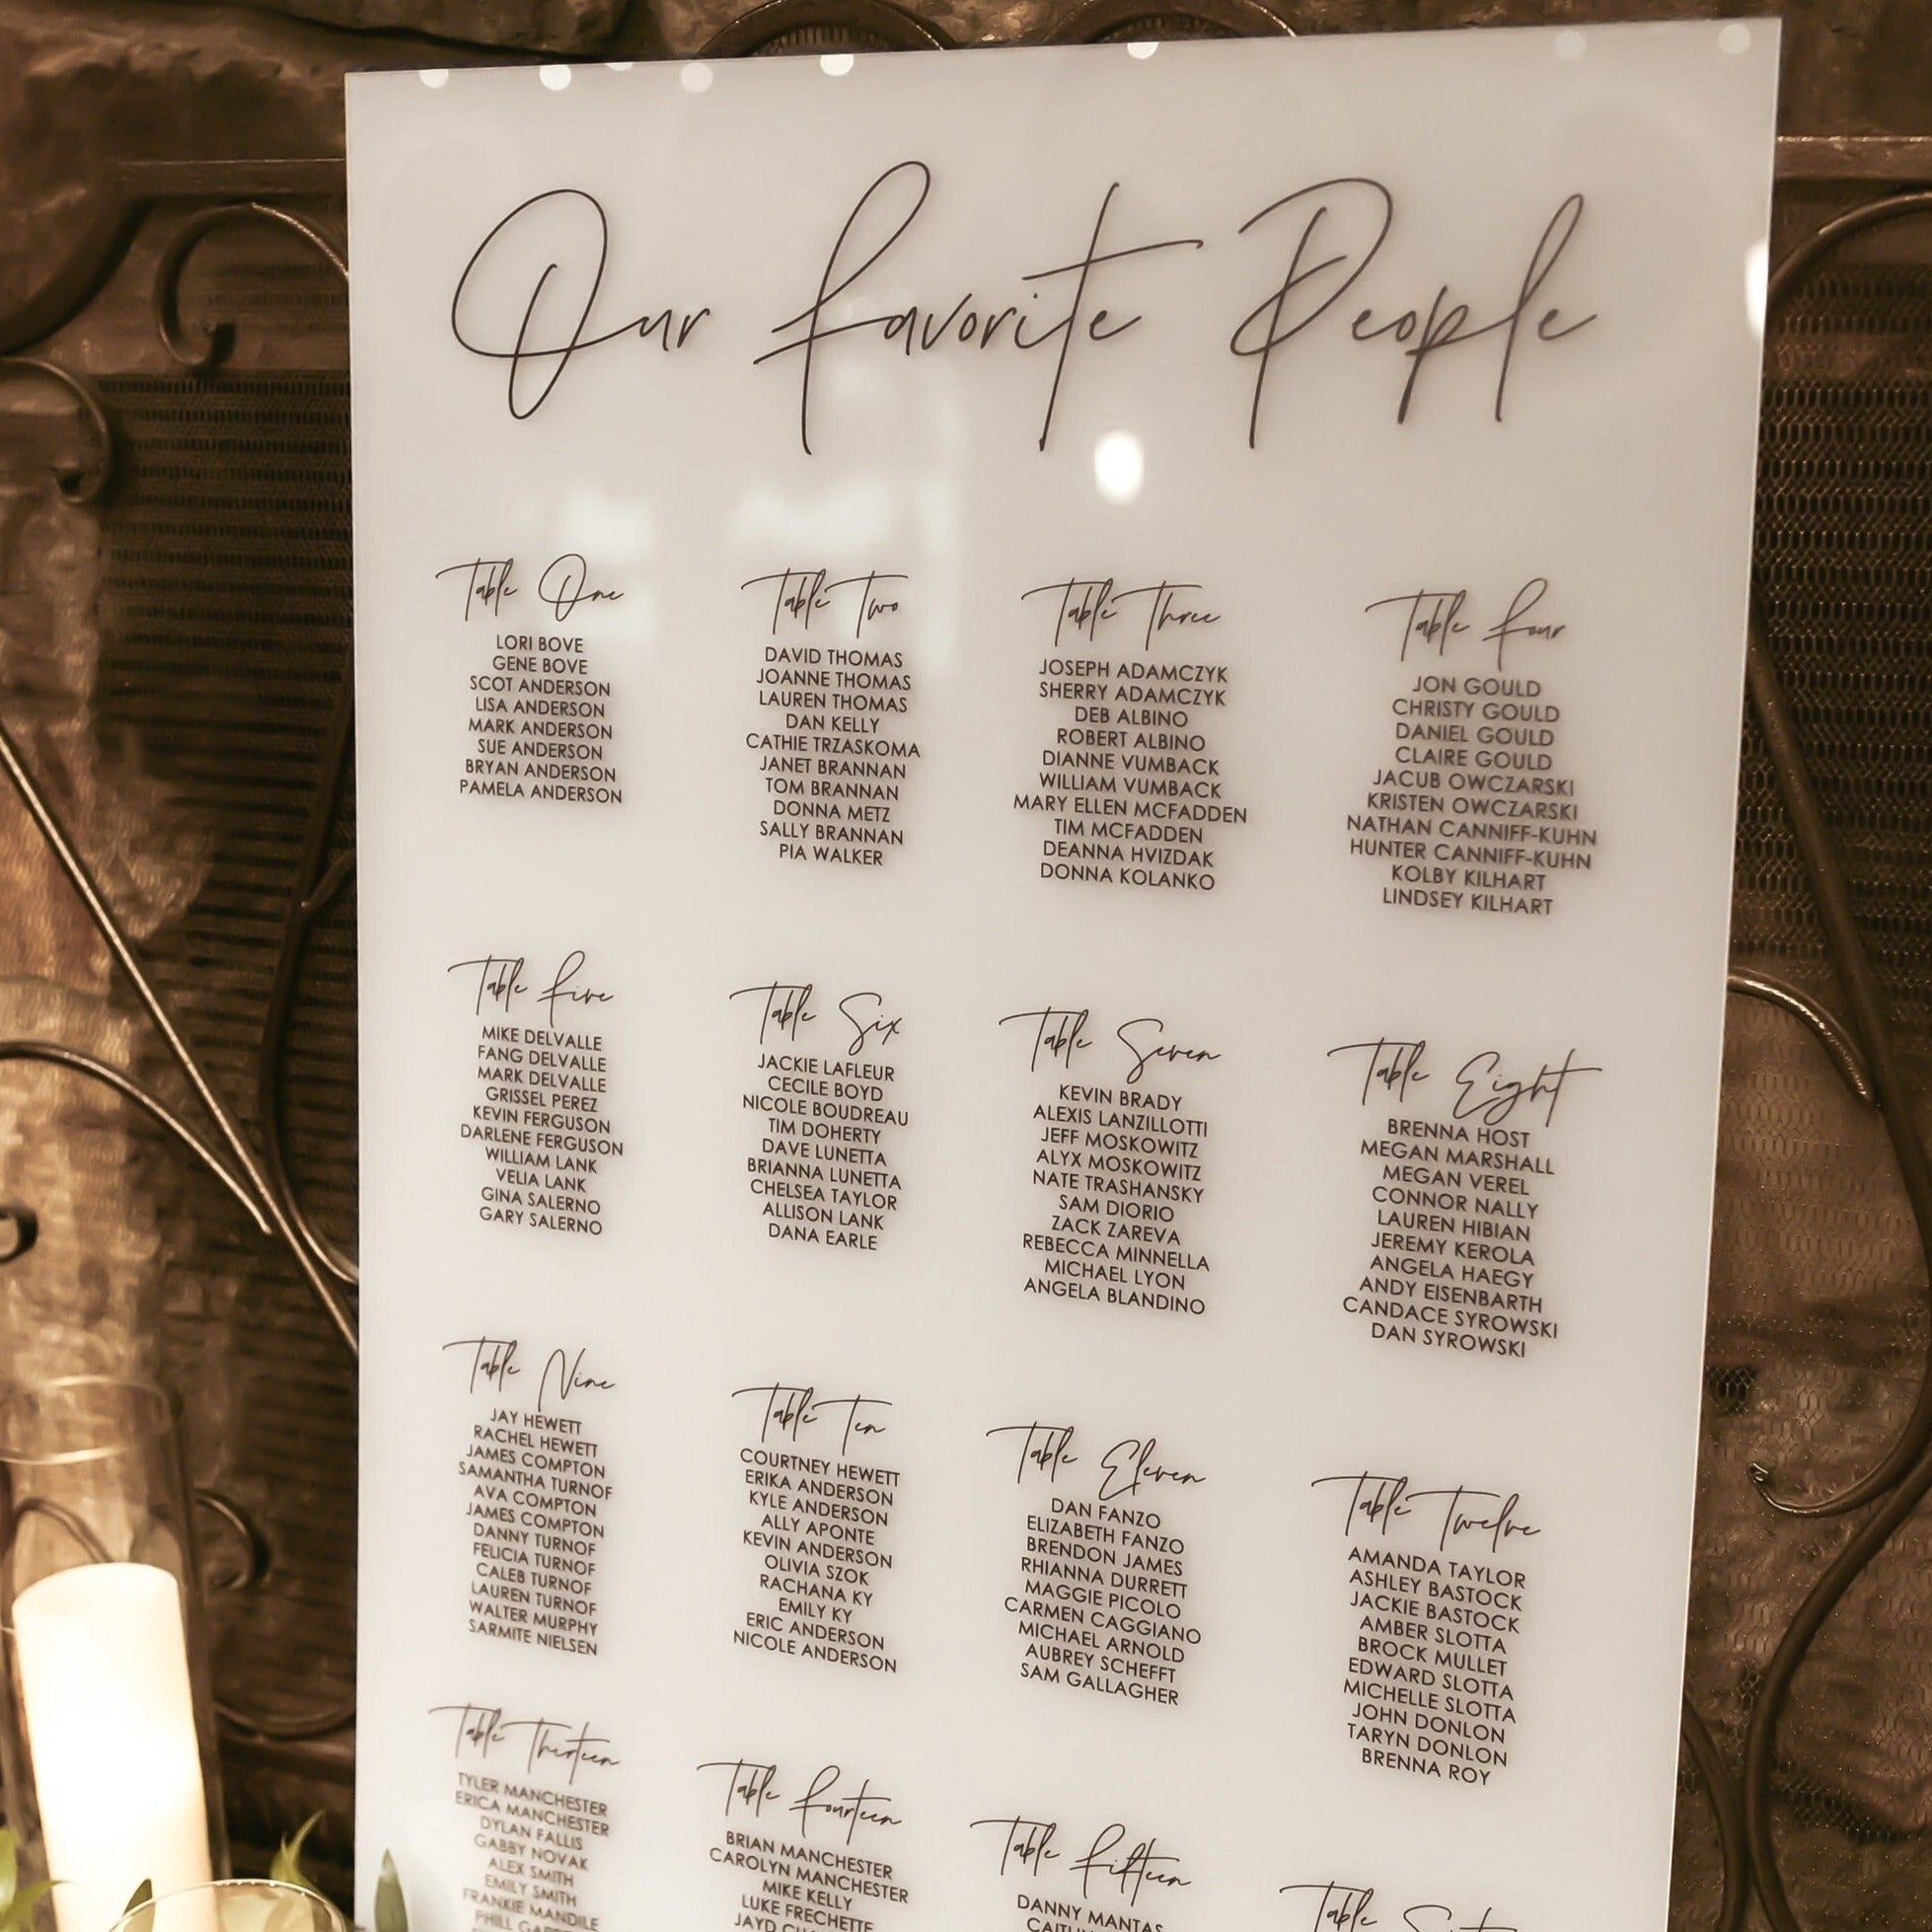 Our Favorite People
Table One
LORI BOVE
GENE BOVE
SCOT ANDERSON
LISA ANDERSON
MARK ANDERSON
SUE ANDERSON
BRYAN ANDERSON
PAMELA ANDERSON
Table Two
DAVID THOMAS
JOANNE THOMAS
LAUREN THOMAS
DAN KELLY
CATHIE TRZASKOMA
JANET BRANNAN
TOM BRANNAN
DONNA METZ
SALLY BRANNAN
PIA WALKER
Table Three
JOSEPH ADAMCZYK
SHERRY ADAMCZYK
DEB ALBINO
ROBERT ALBINO
DIANNE VUMBACK
WILLIAM VUMBACK
MARY ELLEN MCFADDEN
TIM MCFADDEN
DEANNA HVIZDAK
DONNA KOLANKO
Table Four
JON GOULD
CHRISTY GOULD
DANIEL GOULD
CLAIRE GOULD
JACUB OWCZARSKI
KRISTEN OWCZARSKI
NATHAN CANNIFF-KUHN
HUNTER CANNIFF-KUHN
KOLBY KILHART
LINDSEY KILHART
Table Five
MIKE DELVALLE
FANG DELVALLE
MARK DELVALLE
GRISSEL PEREZ
KEVIN FERGUSON
DARLENE FERGUSON
WILLIAM LANK
VELIA LANK
GINA SALERNO
GARY SALERNO
Table Six
JACKIE LAFLEUR
CECILE BOYD
NICOLE BOUDREAU
TIM DOHERTY
DAVE LUNETTA
BRIANNA LUNETTA
CHELSEA TAYLOR
ALLISON LANK
DANA EARLE
Table Seven
KEVIN BRADY
ALEXIS LANZILLOTTI
JEFF MOSKOWITZ
ALYX MOSKOWITZ
NATE TRASHANSKY
SAM DIORIO
ZACK ZAREVA
REBECCA MINNELLA
MICHAEL LYON
ANGELA BLANDINO
Table Eight
BRENNA HOST
MEGAN MARSHALL
MEGAN VEREL
CONNOR NALLY
LAUREN HIBIAN
JEREMY KEROLA
ANGELA HAEGY
ANDY EISENBARTH
CANDACE SYROWSKI
DAN SYROWSKI
Table Nine
JAY HEWETT
RACHEL HEWETT
JAMES COMPTON
SAMANTHA TURNOF
AVA COMPTON
JAMES COMPTON
DANNY TURNOF
FELICIA TURNOF
CALEB TURNOF
LAUREN TURNOF
WALTER MURPHY
SARMITE NIELSEN
Table Ten
COURTNEY HEWETT
ERIKA ANDERSON
KYLE ANDERSON
ALLY APONTE
KEVIN ANDERSON
OLIVIA SZOK
RACHANA KY
EMILY KY
ERIC ANDERSON
NICOLE ANDERSON
Table Eleven
DAN FANZO
ELIZABETH FANZO
BRENDON JAMES
RHIANNA DURRETT
MAGGIE PICOLO
CARMEN CAGGIANO
MICHAEL ARNOLD
AUBREY SCHEFFT
SAM GALLAGHER
Table Twelve
AMANDA TAYLOR
ASHLEY BASTOCK
JACKIE BASTOCK
AMBER SLOTTA
BROCK MULLET
EDWARD SLOTTA
MICHELLE SLOTTA
JOHN DONLON
TARYN DONLON
BRENNA ROY
Table Thirteen
TYLER MANCHESTER
ERICA MANCHESTER
DYLAN FALLIS
GABBY NOVAK
ALEX SMITH
EMILY SMITH
FRANKIE MANDILE
PHILL
Table Fourteen
BRIAN MANCHESTER
CAROLYN MANCHESTER
MIKE KELLY
LUKE FRECHETTE
JAYD
Table Fifteen
DANNY MANTAS
Table